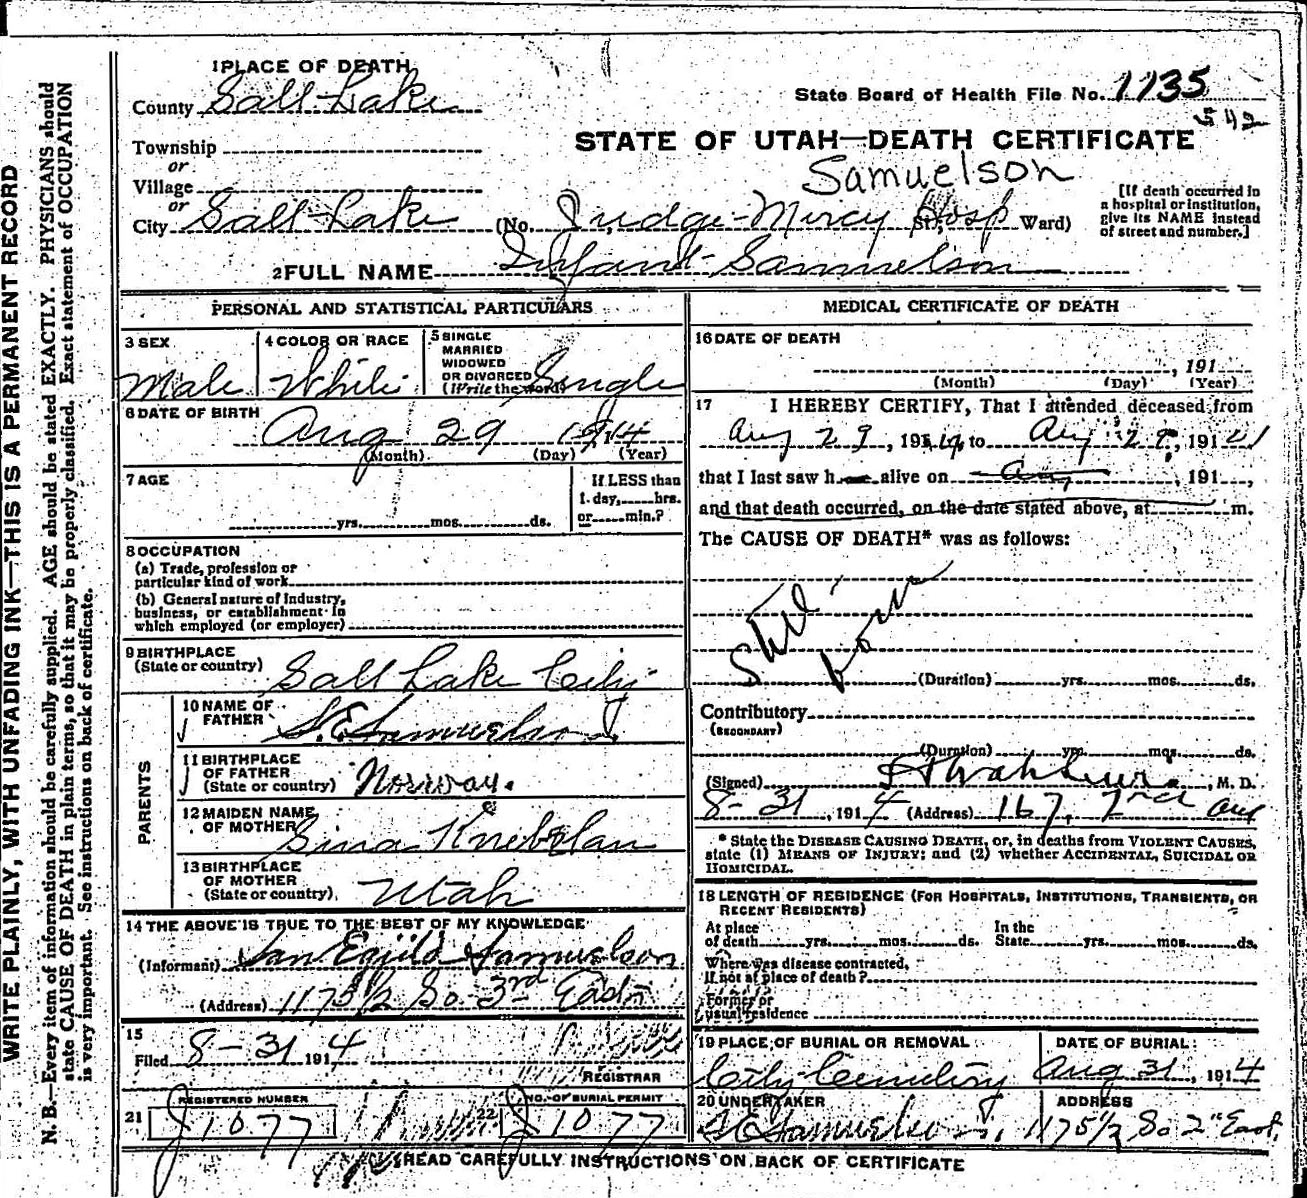 WRITE PLAINLY, WITH UNFADING INK—THIS IS A PERMANENT RECORD
N. B.—Every item of information should be carefully supplied. AGE should be stated EXACTLY. PHYSICIANS should
state CAUSE OF DEATH in plain terms, so that it may be properly classified. Exact statement of OCCUPATION
is very important. See instructions on back of certificate.
1 PLACE OF DEATH
County Salt Lake
State Board of Health File No. 1135
542
STATE OF UTAH—DEATH CERTIFICATE
Township
or
Village
or
Samuelson
City Salt Lake (No. Judge Mercy Hosp St., Ward)
[If death occurred in
a hospital or institution,
give its NAME instead
of street and number.]
2 FULL NAME Infant Samuelson
PERSONAL AND STATISTICAL PARTICULARS
3 SEX
Male
4 COLOR OR RACE
White
5 SINGLE
MARRIED
WIDOWED
OR DIVORCED
(Write the word) Single
6 DATE OF BIRTH
Aug 29 1914
(Month) (Day) (Year)
7 AGE
yrs. mos. ds.
If LESS than
1 day, hrs.
or min.?
8 OCCUPATION
(a) Trade, profession or
particular kind of work
(b) General nature of industry,
business, or establishment in
which employed (or employer)
9 BIRTHPLACE
(State or country) Salt Lake City
PARENTS
10 NAME OF
FATHER S. E. Samuelson
11 BIRTHPLACE
OF FATHER
(State or country) Norway.
12 MAIDEN NAME
OF MOTHER Sina
13 BIRTHPLACE
OF MOTHER
(State or country) Utah
14 THE ABOVE IS TRUE TO THE BEST OF MY KNOWLEDGE
(Informant) Samuelson
(Address) 1175 1/2 So 3rd East
15
Filed 8-31 1914
REGISTRAR
21
REGISTERED NUMBER
J 1077
22
NO. OF BURIAL PERMIT
J 1077
MEDICAL CERTIFICATE OF DEATH
16 DATE OF DEATH
, 191
(Month) (Day) (Year)
17 I HEREBY CERTIFY, That I attended deceased from
Aug 29, 1914, to Aug 29, 191
that I last saw h alive on Aug , 191 ,
and that death occurred, on the date stated above, at m.
The CAUSE OF DEATH* was as follows:
Still born
(Duration) yrs. mos. ds.
Contributory
(SECONDARY)
(Duration) yrs. mos. ds.
(Signed) , M. D.
8-31, 1914 (Address) 167, 2nd ave
* State the DISEASE CAUSING DEATH, or, in deaths from VIOLENT CAUSES,
state (1) MEANS OF INJURY; and (2) whether ACCIDENTAL, SUICIDAL OR
HOMICIDAL.
18 LENGTH OF RESIDENCE (FOR HOSPITALS, INSTITUTIONS, TRANSIENTS, OR
RECENT RESIDENTS)
At place
of death yrs. mos. ds.
In the
State yrs. mos. ds.
Where was disease contracted,
If not at place of death?
Former or
usual residence
19 PLACE OF BURIAL OR REMOVAL
City Cemetery
DATE OF BURIAL:
Aug 31, 1914
20 UNDERTAKER
S E Samuelson
ADDRESS
1175 1/2 So 2" East.
READ CAREFULLY INSTRUCTIONS ON BACK OF CERTIFICATE